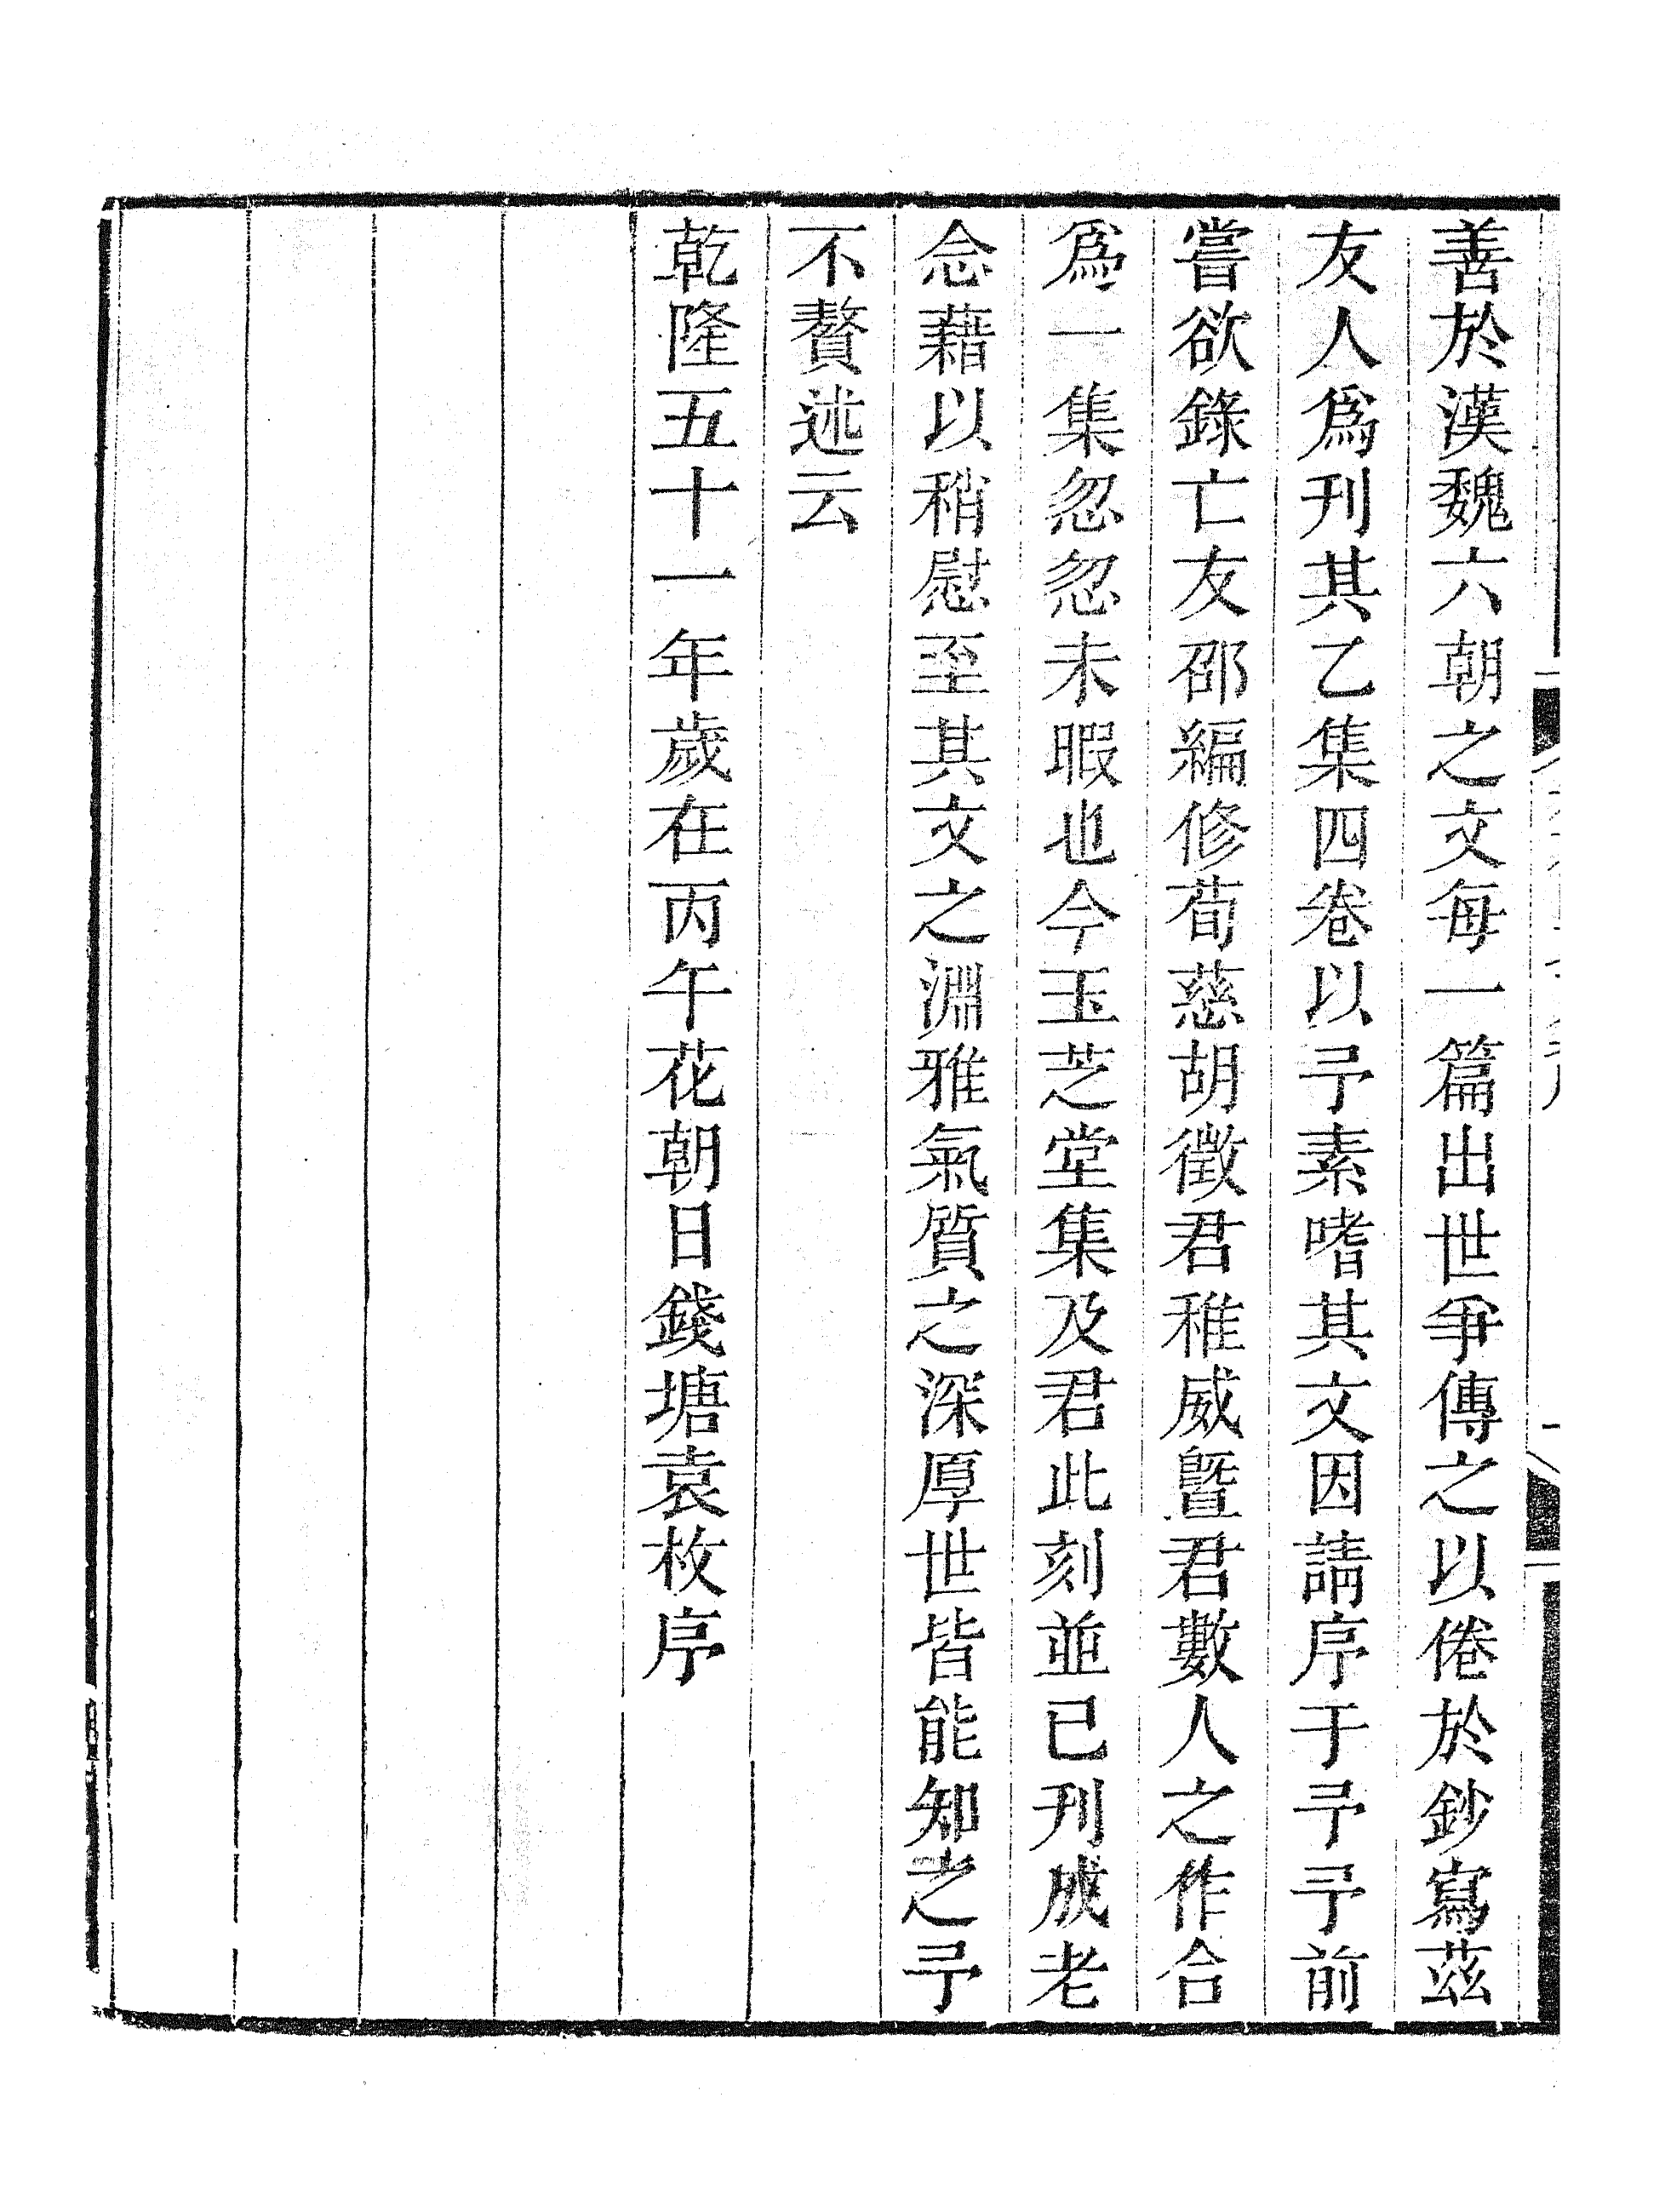 善於漢魏六朝之文每一篇出世爭傳之以倦於鈔寫茲
友人爲刊其乙集四卷以予素嗜其文因請序于予予前
嘗欲錄亡友邵編修荀慈胡徵君稚威曁君數人之作合
爲一集忽忽未暇也今玉芝堂集及君此刻並已刋成老
念藉以稍慰至其文之淵雅氣質之深厚世皆能知之予
不贅述云
乾隆五十一年歲在丙午花朝日錢塘袁枚序